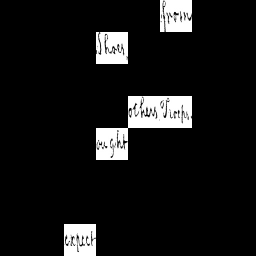 from
Shoes,
others. Troops.
ought
expect